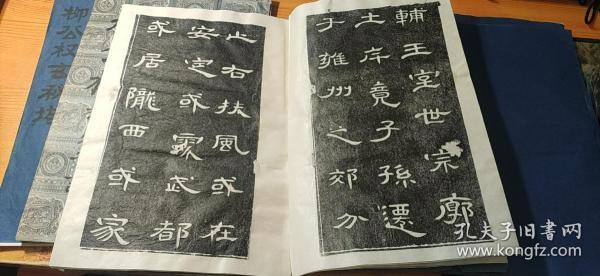 輔王室世宗廓
土斥竟子孫遷
于雍州之郊分
止右扶風或在
安定或處武都
或居隴西或家
柳公权玄秘塔
孔夫子旧书网
www.kongfz.com